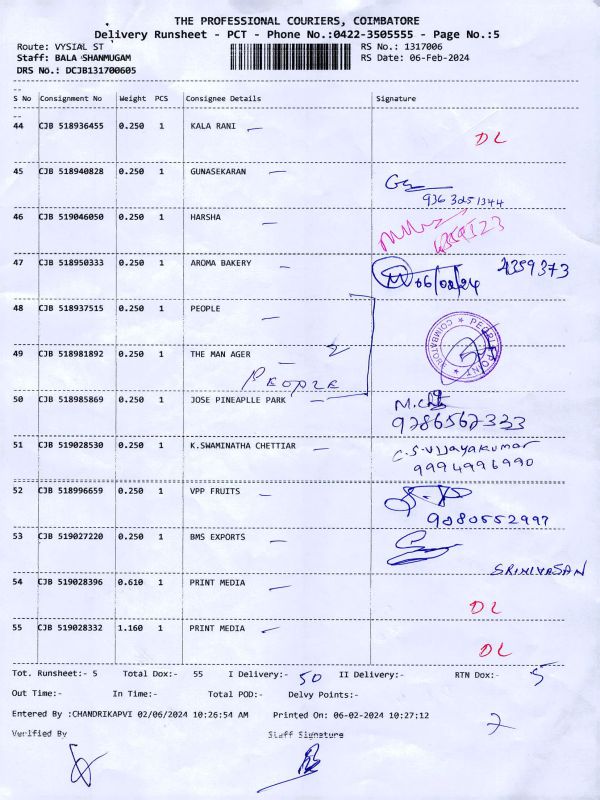 THE PROFESSIONAL COURIERS, COIMBATORE
Delivery Runsheet - PCT - Phone No.:0422-3505555 - Page No.:5
Route: VYSIAL ST RS No.: 1317006
Staff: BALA SHANMUGAM RS Date: 06-Feb-2024
DRS No.: DCJB131700605
S No Consignment No Weight PCS Consignee Details Signature
44 CJB 518936455 0.250 1 KALA RANI DL
45 CJB 518940828 0.250 1 GUNASEKARAN
9363251344
46 CJB 519046050 0.250 1 HARSHA
47 CJB 518950333 0.250 1 AROMA BAKERY 06/02/24 4359373
48 CJB 518937515 0.250 1 PEOPLE
PEOPLE POINT COIMBATORE
49 CJB 518981892 0.250 1 THE MAN AGER
PEOPLE
50 CJB 518985869 0.250 1 JOSE PINEAPLLE PARK
9786567333
51 CJB 519028530 0.250 1 K.SWAMINATHA CHETTIAR C.S.Vijayakumar
9994996990
52 CJB 518996659 0.250 1 VPP FRUITS
9080552997
53 CJB 519027220 0.250 1 BMS EXPORTS
SRINIVASAN
54 CJB 519028396 0.610 1 PRINT MEDIA DL
55 CJB 519028332 1.160 1 PRINT MEDIA DL
Tot. Runsheet:- 5 Total Dox:- 55 I Delivery:- 50 II Delivery:- RTN Dox:- 5
Out Time:- In Time:- Total POD:- Delvy Points:-
Entered By :CHANDRIKAPVI 02/06/2024 10:26:54 AM Printed On: 06-02-2024 10:27:12
2
Verified By Staff Signature